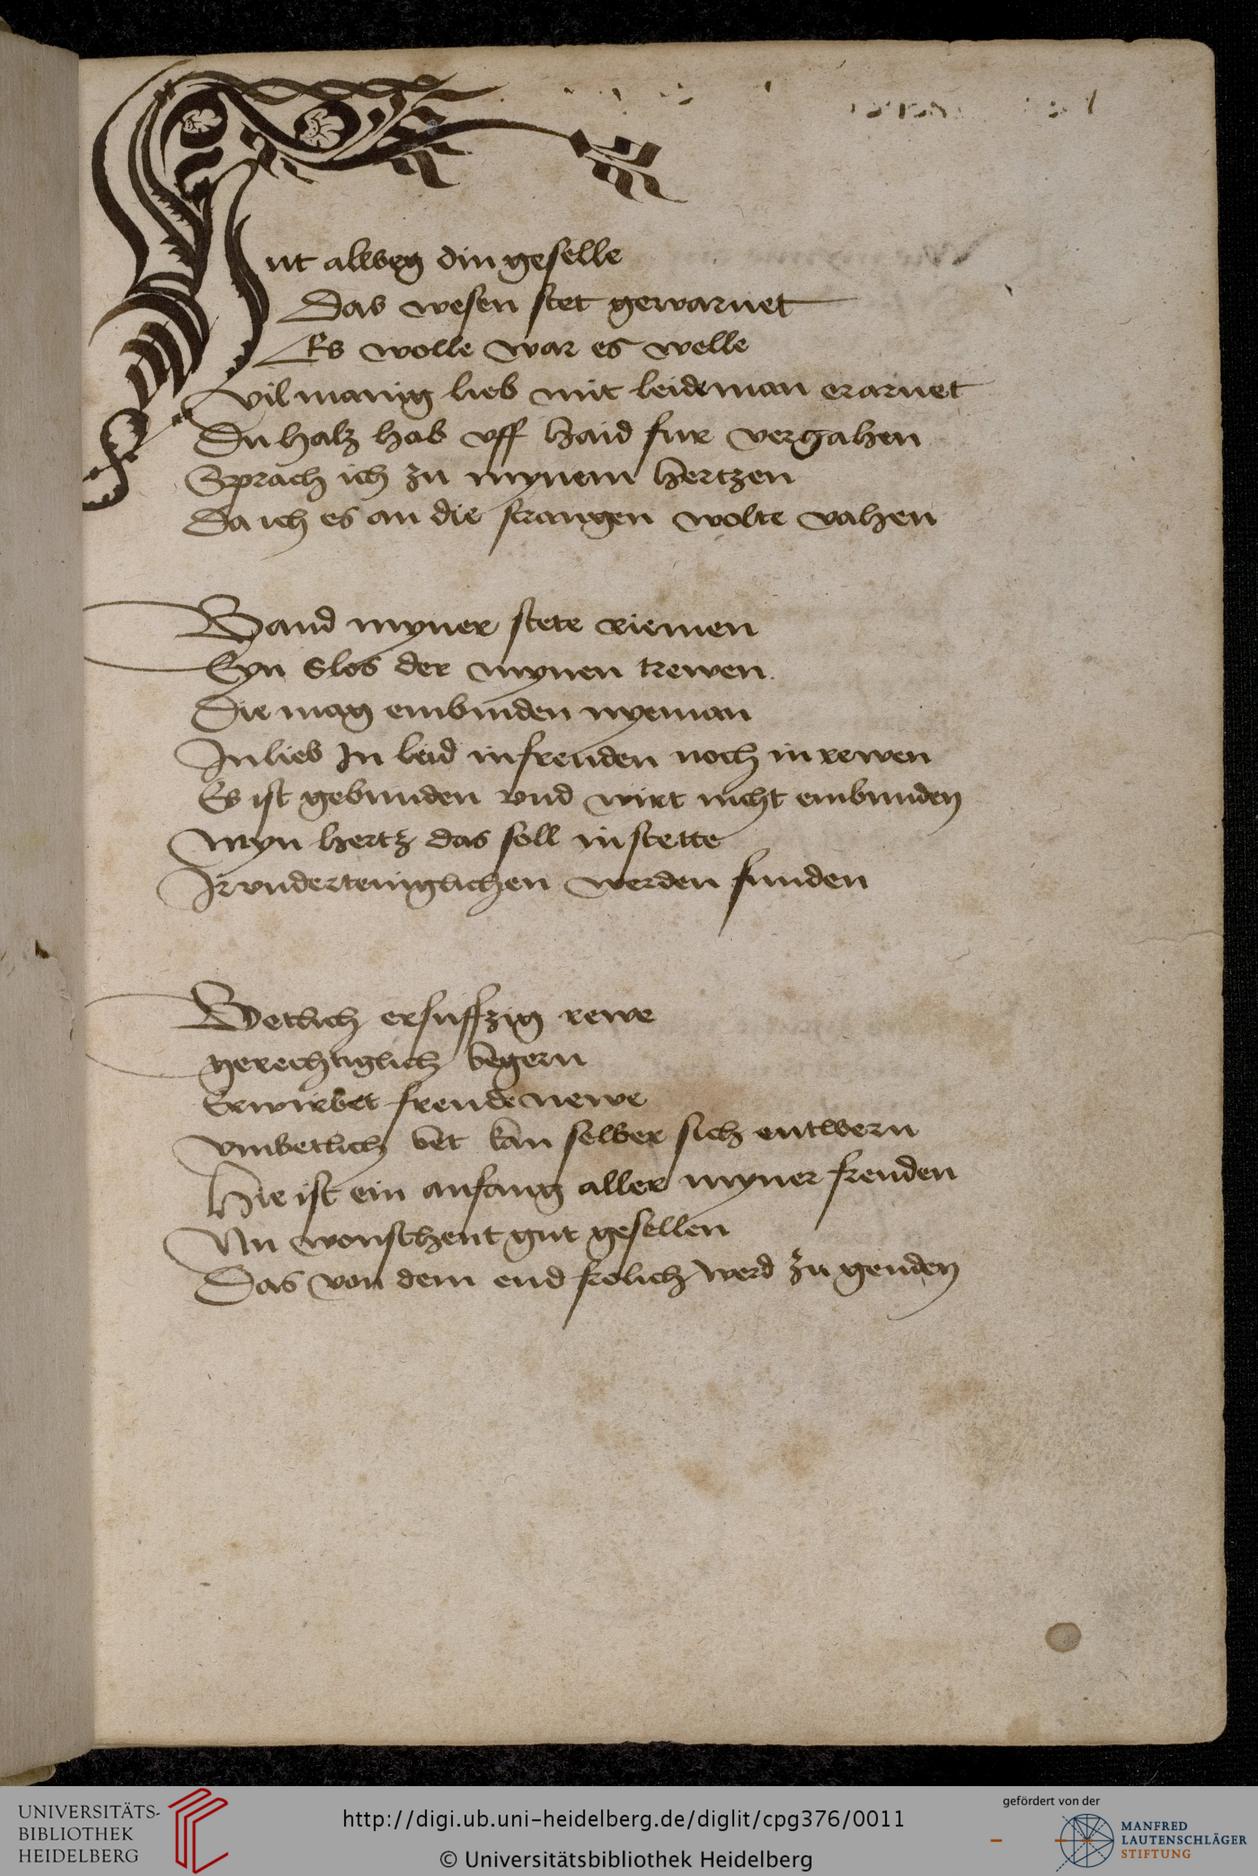 nt allweg din geselle
Das wesen stet gewarnet
Es wolle war es welle
vil manig lieb mit leide man erarnet
Du halz hab vff haid fur vergahen
Sprach ich zu mynem hertzen
Da ich es an die strangen wolte vahen
Band myner stete riemen
Eyn slos der mynen trewen
Die mag embinden nyeman
In lieb In leid in freuden noch in rewen
Es ist gebunden vnd wirt nicht embunden
Myn hertz das soll in stette
Ir vnderteniglichen werden funden
Betlich ersuffzig rewe
gerechtiglich begern
Erwirbet freude newe
vnbetlich bet kan selber sich entwern
Hie ist ein anfang aller myner freuden
Nu wonschent gut gesellen
Das von dem end frolich werd zu genden
UNIVERSITÄTS-
BIBLIOTHEK
HEIDELBERG
http://digi.ub.uni-heidelberg.de/diglit/cpg376/0011
© Universitätsbibliothek Heidelberg
gefördert von der
MANFRED
LAUTENSCHLÄGER
STIFTUNG